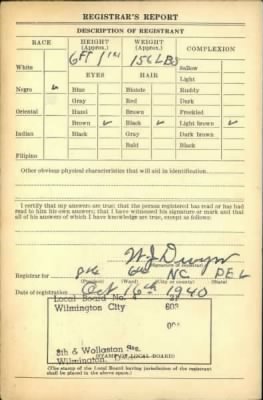 REGISTRAR'S REPORT
DESCRIPTION OF REGISTRANT
RACE HEIGHT (Approx.) WEIGHT (Approx.) COMPLEXION
6 FT 1 IN 156 LBS
White Sallow
EYES HAIR Light
Negro ✓ Blue Blonde Ruddy
Gray Red Dark
Oriental Hazel Black Freckled
Brown ✓ Brown ✓ Light brown ✓
Indian Black Gray Dark brown
Bald Black
Filipino
Other obvious physical characteristics that will aid in identification
I certify that my answers are true; that the person registered has read or has had read to him his own answers; that I have witnessed his signature or mark and that all of his answers of which I have knowledge are true, except as follows:
(Signature of registrar)
Registrar for 6th NC DEL
(Precinct) (Ward) (City or county) (State)
Date of registration Oct 16th 1940
Local Board No. 21
Wilmington City 003
8th & Wollaston Sts.
Wilmington,
(STAMP OF LOCAL BOARD)
(The stamp of the Local Board having jurisdiction of the registrant shall be placed in the above space.)